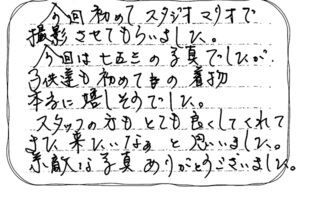 今回初めてスタジオマリオで
撮影させてもらいました。
今回は七五三の写真でしたが、
子供達も初めての着物
本当に嬉しそうでした。
スタッフの方もとても良くしてくれて
また来たいなぁと思いました。
素敵な写真ありがとうございました。